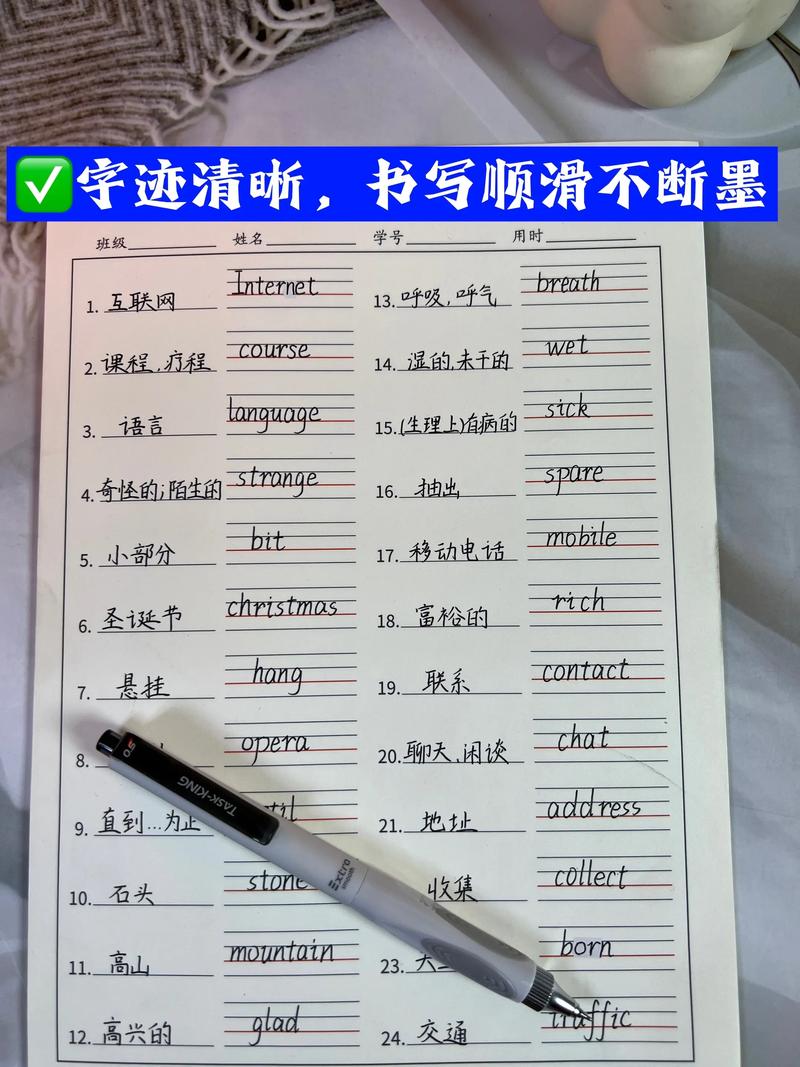 ✅字迹清晰，书写顺滑不断墨
班级 姓名 学号 用时
1. 互联网 Internet
2. 课程,疗程 course
3. 语言 language
4. 奇怪的;陌生的 strange
5. 小部分 bit
6. 圣诞节 christmas
7. 悬挂 hang
8. opera
9. 直到...为止
10. 石头 stone
11. 高山 mountain
12. 高兴的 glad
13. 呼吸,呼气 breath
14. 湿的,未干的 wet
15. (生理上)有病的 sick
16. 抽出 spare
17. 移动电话 mobile
18. 富裕的 rich
19. 联系 contact
20. 聊天,闲谈 chat
21. 地址 address
收集 collect
23. born
24. 交通 traffic
0.5
TASK-KING
Extra
smooth